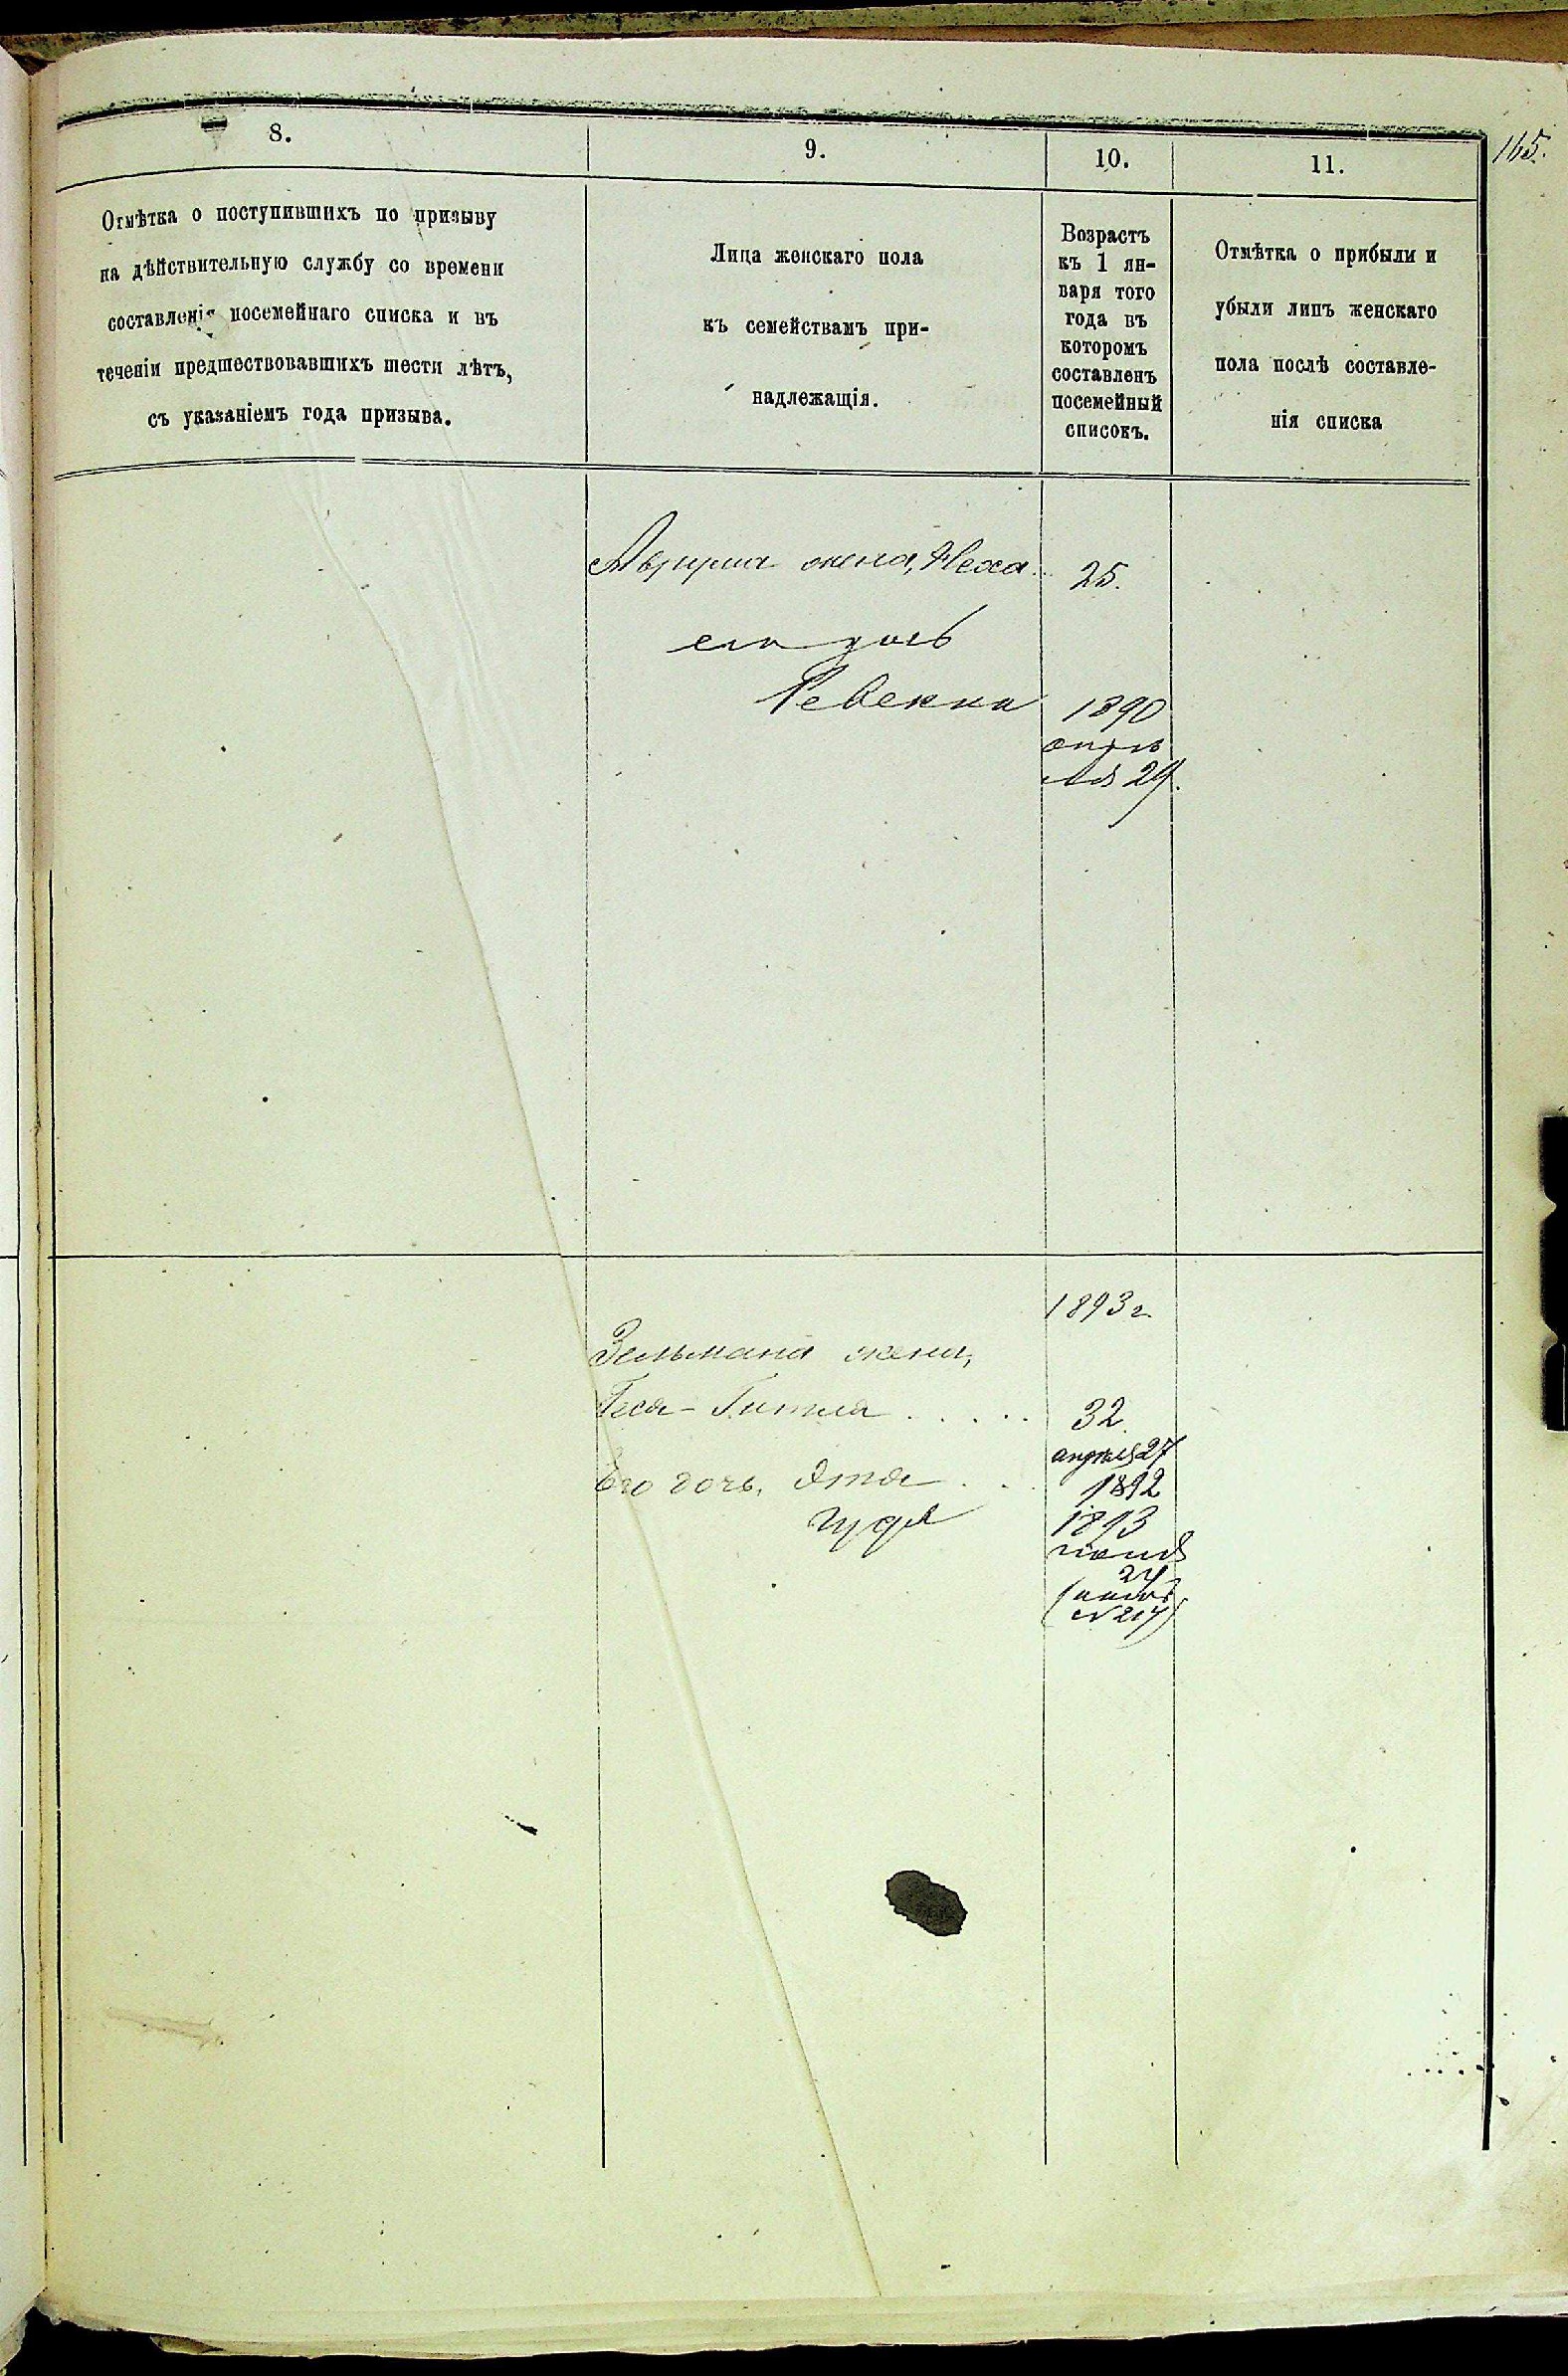 165.
8.
9.
10.
11.
Отмѣтка о поступившихъ по призыву
на дѣйствительную службу со времени
составленія посемейнаго списка и въ
теченіи предшествовавшихъ шести лѣтъ,
съ указаніемъ года призыва.
Лица женскаго пола
къ семействамъ при-
надлежащія.
Возрастъ
къ 1 ян-
варя того
года въ
которомъ
составленъ
посемейный
списокъ.
Отмѣтка о прибыли и
убыли лицъ женскаго
пола послѣ составле-
нія списка
жена, Неха 25.
его дочь
Ревекка 1890
29.
1893 г.
Зельмана жена,
Геся-Гитля . . . . . 32.
апрѣля 27
Его дочь, Этта . . . 1892
1893
24